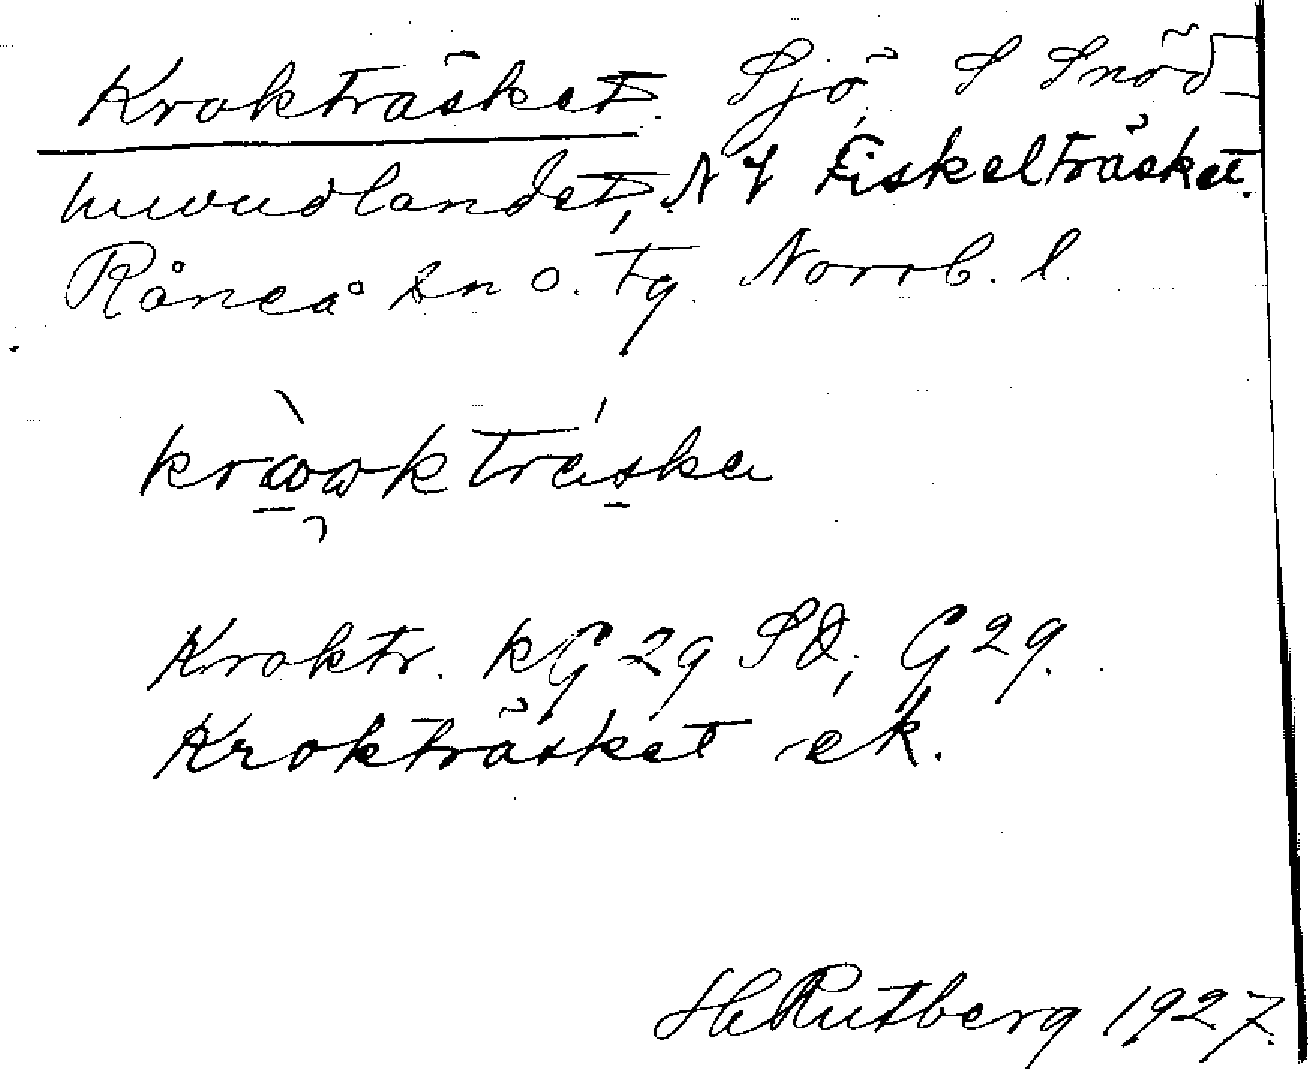 Krokträsket. Sjö S Snöd-
huvudlandet, N f Fiskelträsket.
Råneå sn o. tg. Norrb. l.
kràwwktráska
Kroktr. kG 29 SO; G 29.
Kroktråsket ek.
H Rutberg 1927.